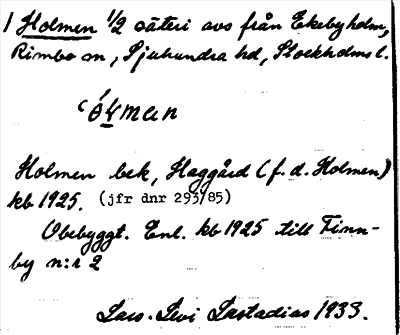 1 Holmen 1/2 säteri avs från Ekebyholm,
Rimbo sn, Sjuhundra hd, Stockholms l.
Holmen bek, Haggård (f. d. Holmen)
kb 1925. (jfr dnr 293/85)
Obebyggt. Enl. kb 1925 till Finn-
by n:r 2
Lars-Levi Læstadius 1933.